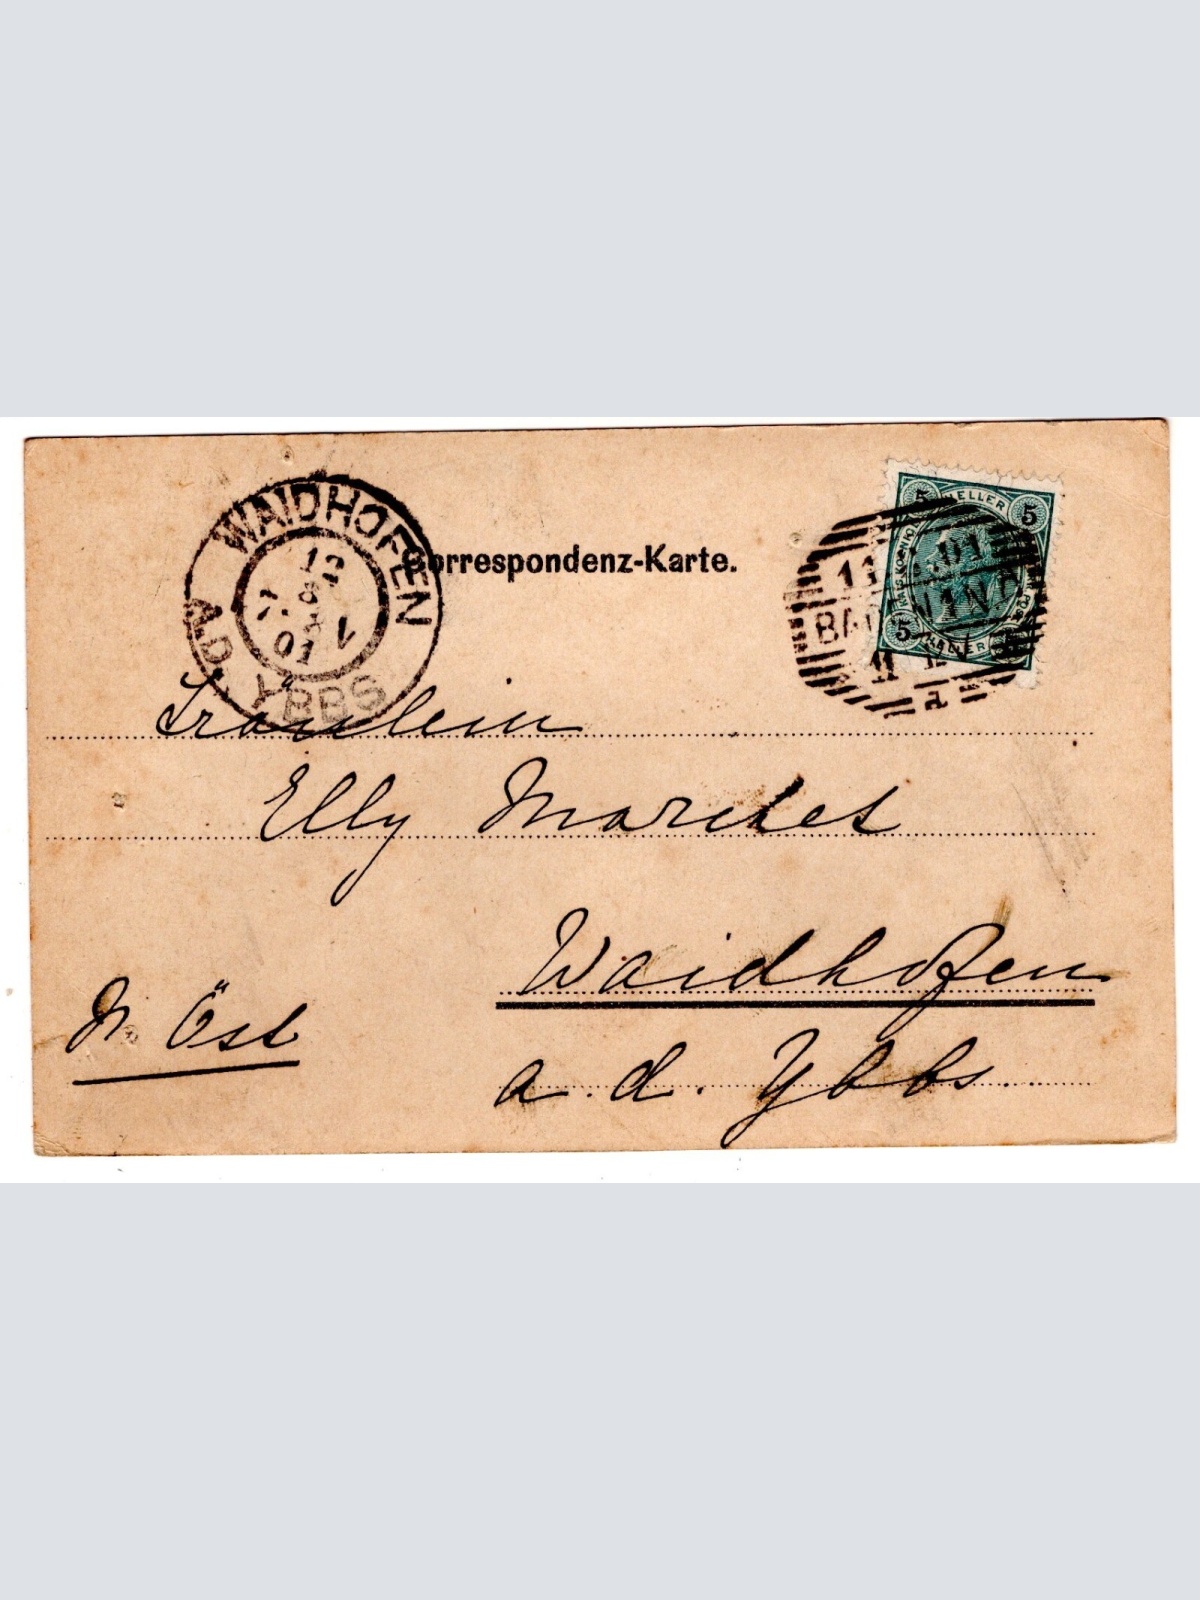 WAIDHOFEN
A.D. YBBS
12
8
01
Correspondenz-Karte.
5 HELLER 5
5 HELLER
11 8 01
11
a
Fräulein
Elly Marchet
Waidhofen
a. d. Ybbs
N. Öst